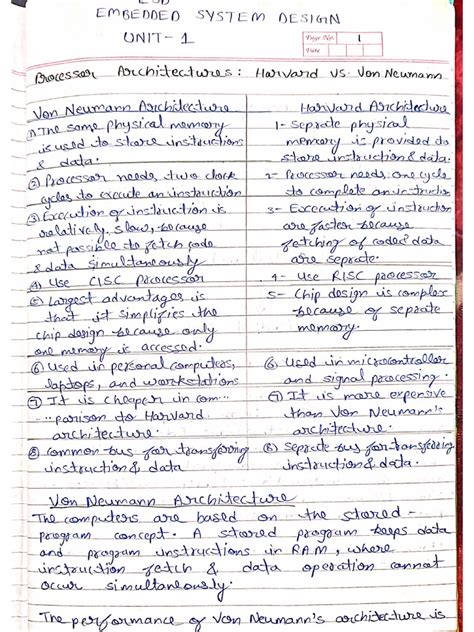 ESD
EMBEDDED SYSTEM DESIGN
UNIT-1
Page No. 1
Date
Processor Architectures: Harvard vs. Von Neumann
Von Neumann Architecture
① The same physical memory
is used to store instructions
& data.
② Processor needs two clock
cycles to execute an instruction
③ Execution of instruction is
relatively slow, because
not possible to fetch code
& data simultaneously
④ Use CISC Processor
⑤ Largest advantages is
that it simplifies the
chip design because only
one memory is accessed.
⑥ Used in personal computers,
laptops, and workstations
⑦ It is cheaper in com-
parison to Harvard
architecture.
⑧ Common bus for transferring
instruction & data
Harvard Architecture
1- Seprate physical
memory is provided to
store instruction & data.
2- Processor needs one cycle
to complete an instruction
3- Execution of instructor
are faster because
fetching of code & data
are seprate.
4- Use RISC processor
5- Chip design is complex
because of separate
memory.
⑥ Used in microcontroller
and signal processing.
⑦ It is more expensive
than Von Neumann's
architecture.
⑧ Seprate bus for transferring
instruction & data.
Von Neumann Architecture
The computers are based on the stored-
program concept. A stored program keeps data
and program instructions in RAM, where
instruction fetch & data operation cannot
occur simultaneously.
The performance of Von Neumann's architecture is